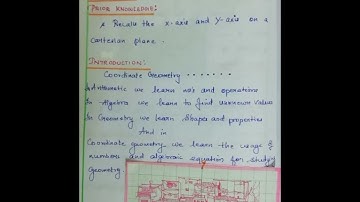 PRIOR KNOWLEDGE:
* Recall the x-axis and y-axis on a
cartesian plane.
INTRODUCTION:
Coordinate Geometry .......
In Arithmetic we learn no's and operations
In Algebra we learn to find unknown values
In Geometry we learn shapes and properties
And in
Coordinate geometry we learn the usage of
numbers and algebraic equation for study
Geometry